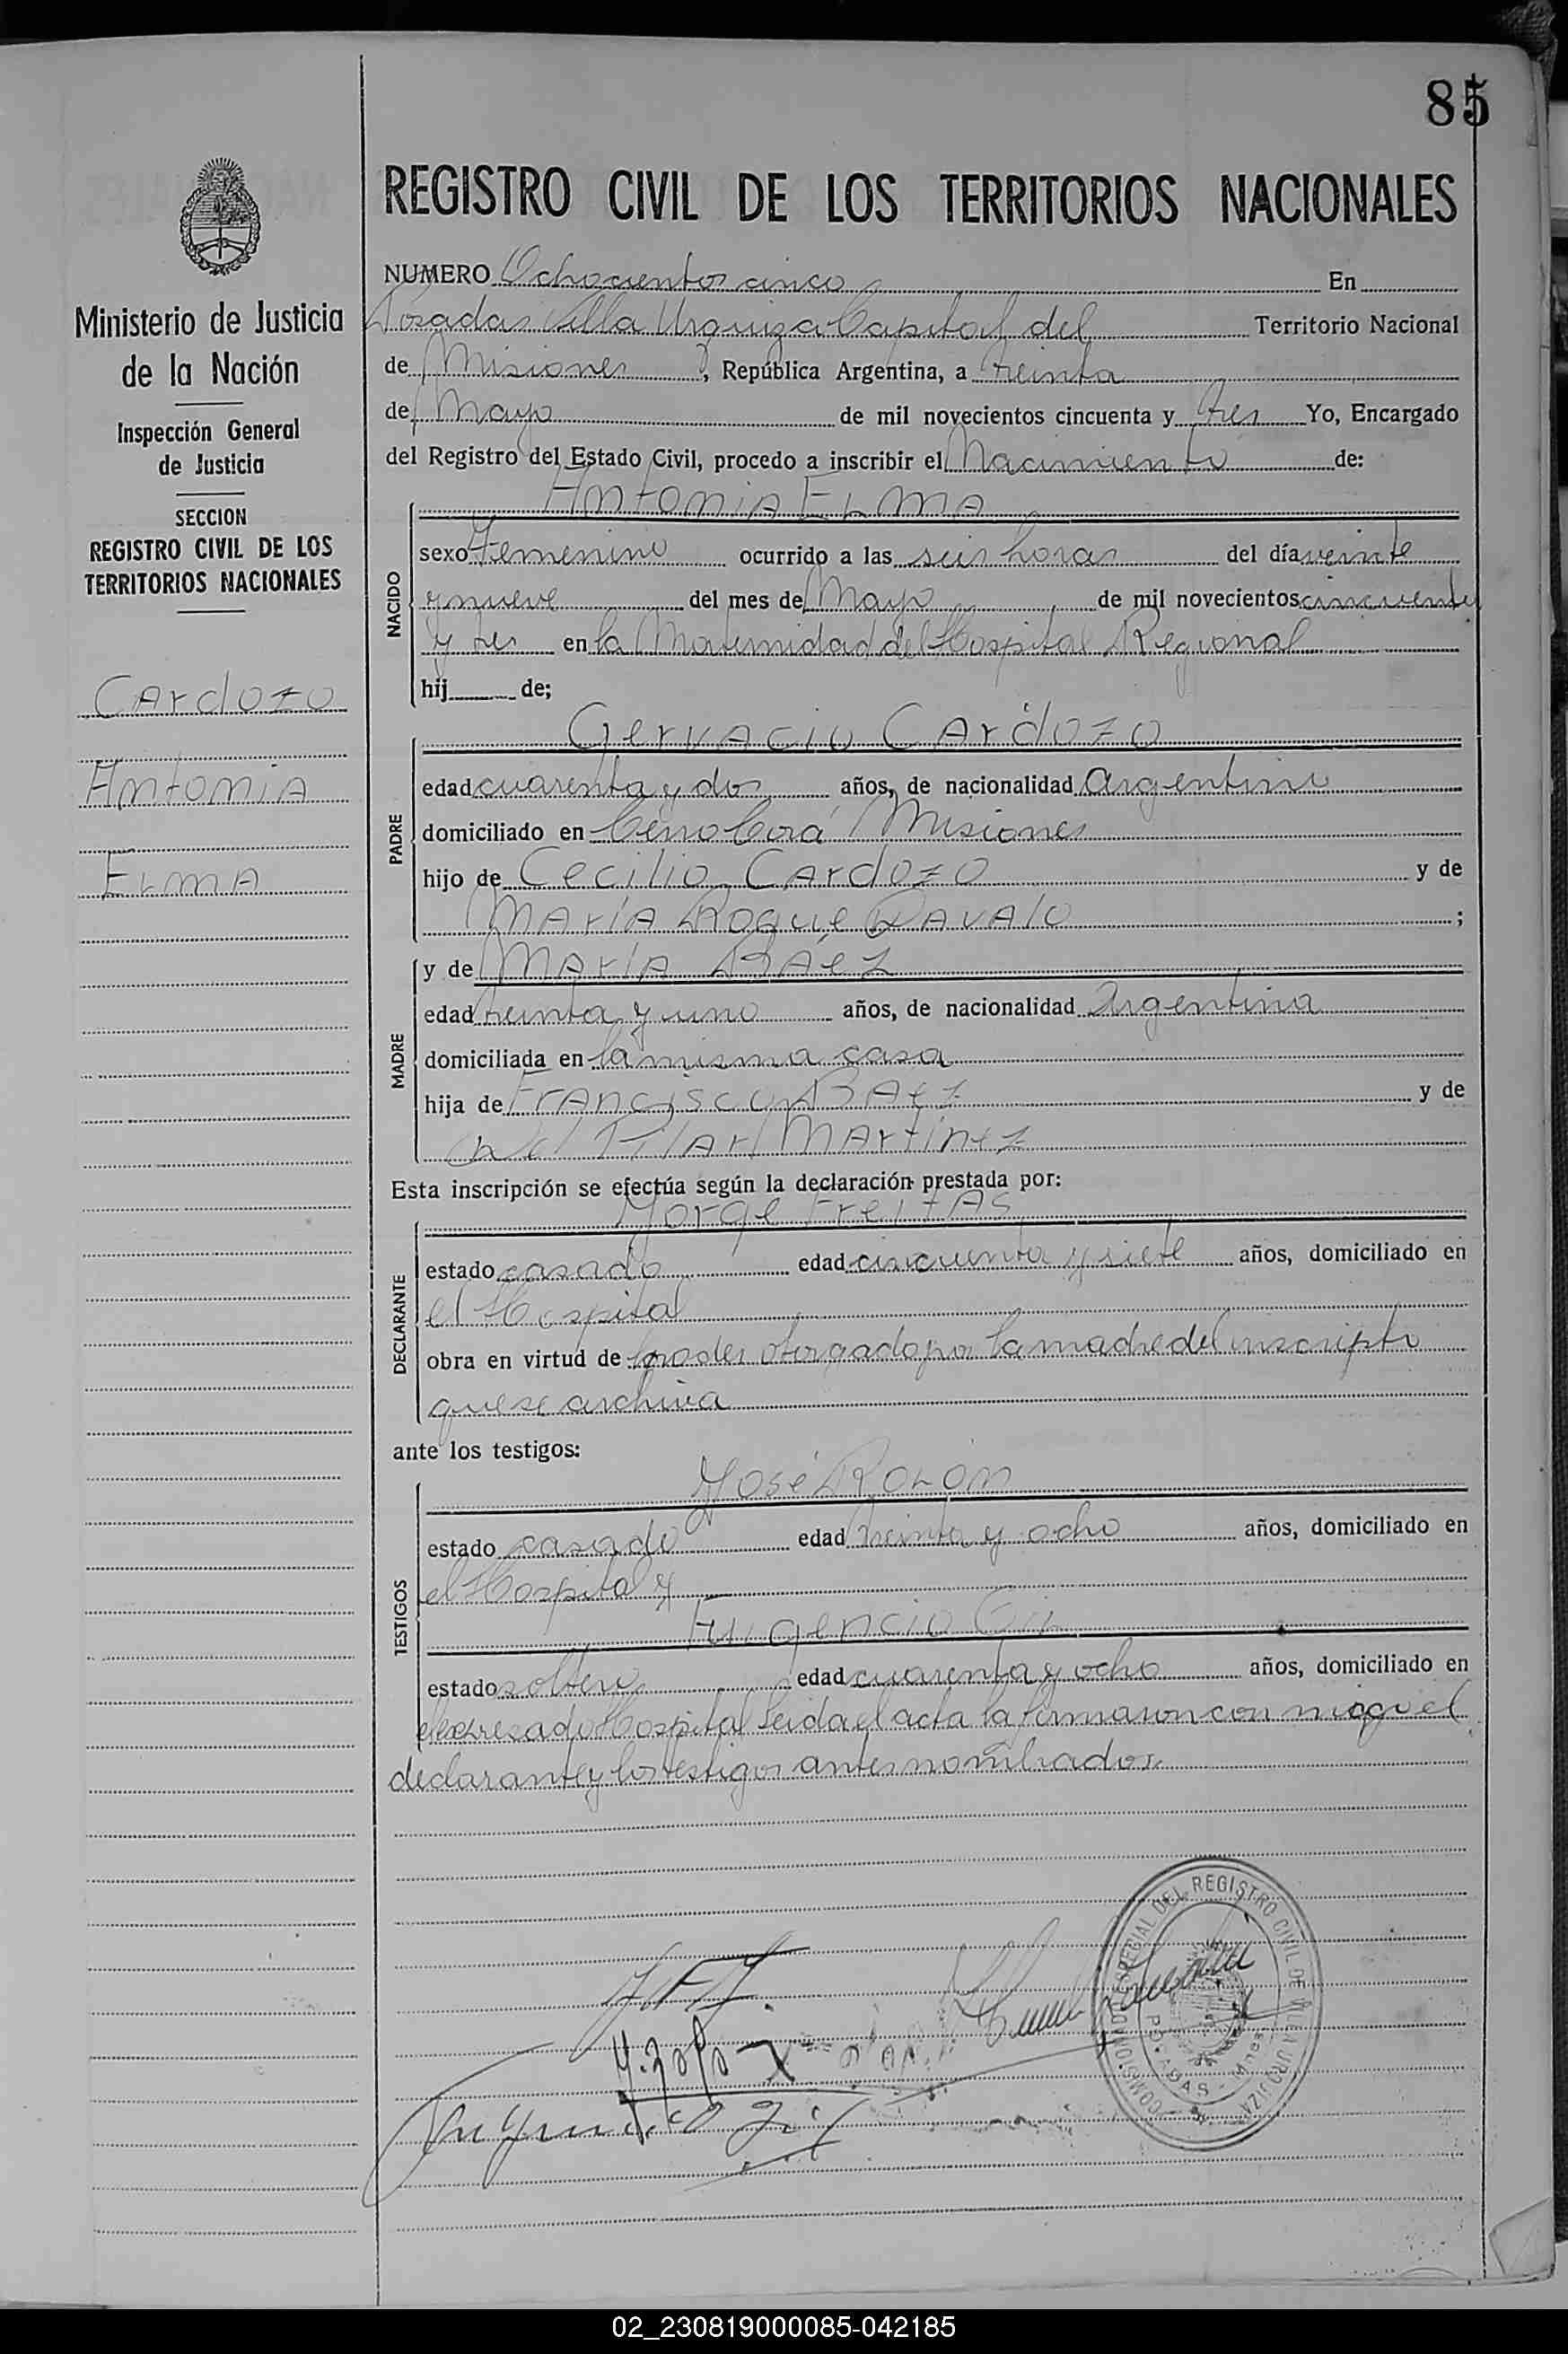 85
REGISTRO CIVIL DE LOS TERRITORIOS NACIONALES
Ministerio de Justicia
de la Nación
Inspección General
de Justicia
SECCION
REGISTRO CIVIL DE LOS
TERRITORIOS NACIONALES
Cardozo
Antonia
Elma
NUMERO Ochocientos cinco En
Posadas Villa Urquiza Capital del Territorio Nacional
de Misiones, República Argentina, a treinta
de Mayo de mil novecientos cincuenta y tres Yo, Encargado
del Registro del Estado Civil, procedo a inscribir el Nacimiento de:
Antonia Elma
NACIDO
sexo Femenino ocurrido a las seis horas del día veinte
y nueve del mes de Mayo de mil novecientos cincuenta
y tres en la Maternidad del Hospital Regional
hij de;
Gervacio Cardozo
PADRE
edad cuarenta y dos años, de nacionalidad Argentino
domiciliado en Cerro Corá Misiones
hijo de Cecilio Cardozo y de
María Roque Davalo ;
MADRE
y de María Báez
edad treinta y uno años, de nacionalidad Argentina
domiciliada en la misma casa
hija de Francisco Baez y de
Del Pilar Martínez
Esta inscripción se efectúa según la declaración prestada por:
Jorge Freitas
DECLARANTE
estado casado edad cincuenta y siete años, domiciliado en
el Hospital
obra en virtud de poder otorgado por la madre del inscripto
que se archiva
ante los testigos:
José Rolon
TESTIGOS
estado casado edad treinta y ocho años, domiciliado en
el Hospital y
Fulgencio Gil
estado soltero edad cuarenta y ocho años, domiciliado en
el expresado Hospital Leida el acta la firmaron conmigo el
declarante y los testigos antes nombrados.
COMISIONADO ESPECIAL DEL REGISTRO CIVIL DE VILLA URQUIZA
POSADAS - Mnes
02_230819000085-042185